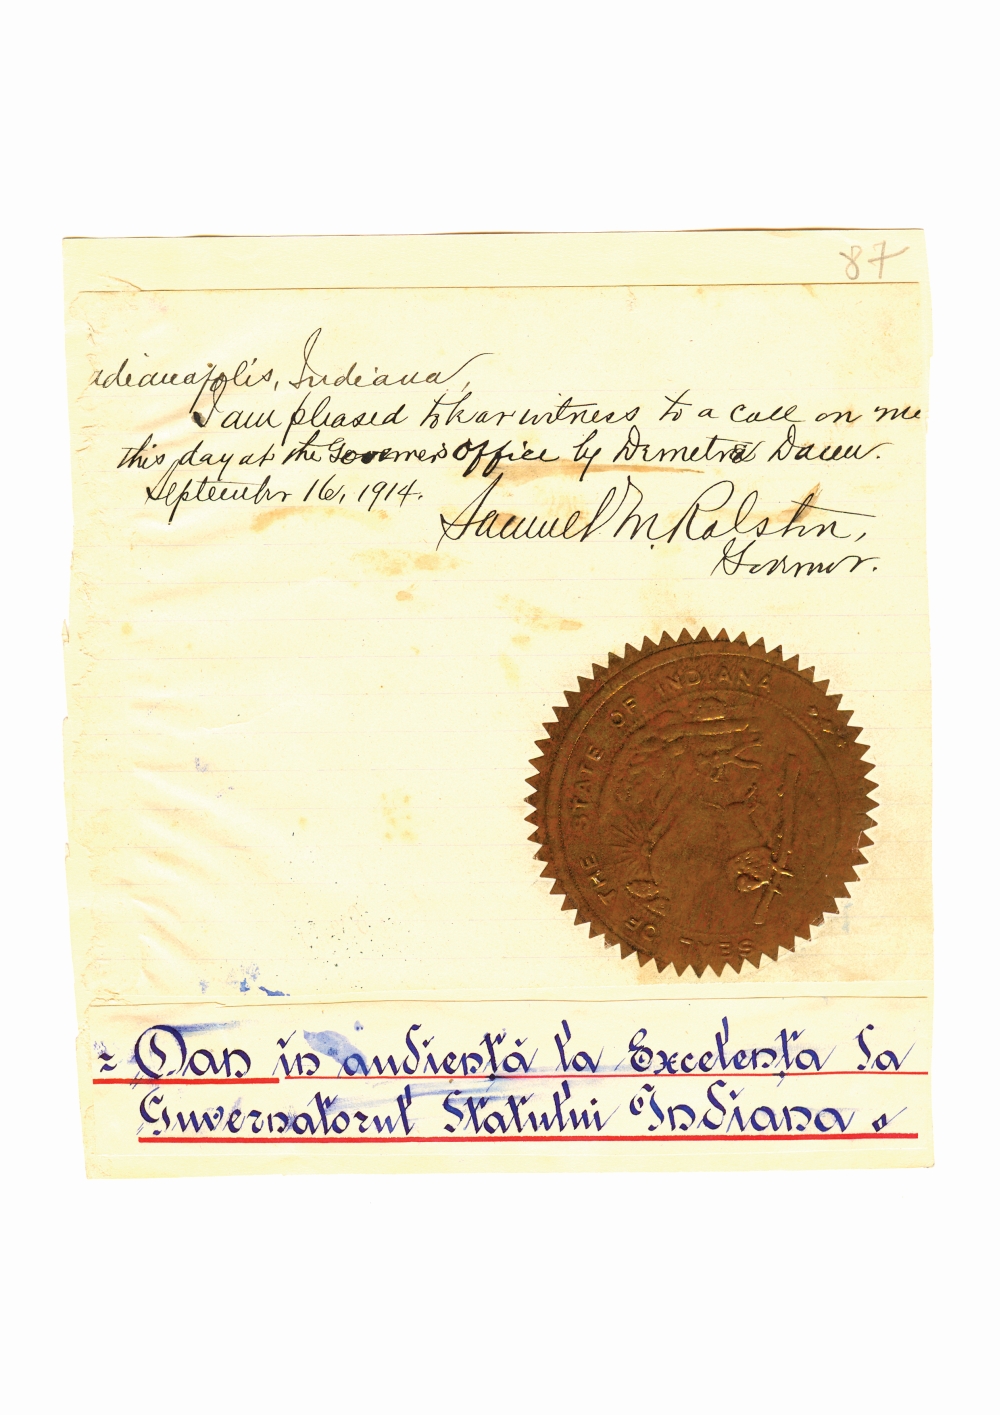 87
ndianapolis, Indiana,
I am pleased to bear witness to a call on me
this day at the Governer's Office by Demetra Dann.
September 16, 1914.
Samuel M. Ralston,
Governor.
SEAL OF THE STATE OF INDIANA
= Dan în audiență la Excelența Sa
Guvernatorul Statului Indiana.